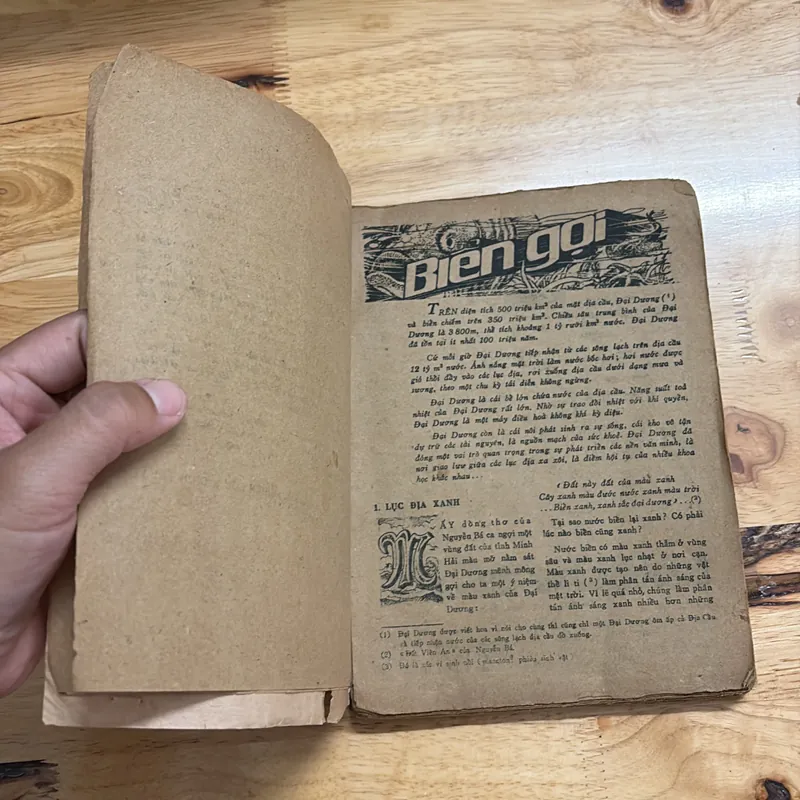 Biển gọi
TRÊN diện tích 500 triệu km² của mặt địa cầu, Đại Dương (¹)
và biển chiếm trên 350 triệu km². Chiều sâu trung bình của Đại
Dương là 3 800m, thể tích khoảng 1 tỷ rưởi km³ nước. Đại Dương
đã tồn tại ít nhất 100 triệu năm.
Cứ mỗi giờ Đại Dương tiếp nhận từ các sông lạch trên địa cầu
12 tỷ m³ nước. Ánh nắng mặt trời làm nước bốc hơi; hơi nước được
gió thổi đầy vào các lục địa, rơi xuống địa cầu dưới dạng mưa và
sương, theo một chu kỳ tái diễn không ngừng.
Đại Dương là cái bể lớn chứa nước của địa cầu. Năng suất toả
nhiệt của Đại Dương rất lớn. Nhờ sự trao đổi nhiệt với khí quyển,
Đại Dương là một máy điều hoà không khí kỳ diệu.
Đại Dương còn là cái nôi phát sinh ra sự sống, cái kho vô tận
dự trữ các tài nguyên, là nguồn mạch của sức khoẻ. Đại Dương đã
đóng một vai trò quan trọng trong sự phát triển các nền văn minh, là
nơi giao lưu giữa các lục địa xa xôi, là điểm hội tụ của nhiều khoa
học khác nhau...
1. LỤC ĐỊA XANH
MẤY dòng thơ của
Nguyễn Bá ca ngợi một
vùng đất của tỉnh Minh
Hải màu mỡ nằm sát
Đại Dương mênh mông
gợi cho ta một ý niệm
về màu xanh của Đại
Dương:
« Đất này đất của màu xanh
Cây xanh màu đước nước xanh màu trời
...Biển xanh, xanh sắc đại dương »...(²)
Tại sao nước biển lại xanh? Có phải
lúc nào biển cũng xanh?
Nước biển có màu xanh thẫm ở vùng
sâu và màu xanh lục nhạt ở nơi cạn.
Màu xanh được tạo nên do những vật
thể li ti (³) làm phân tán ánh sáng của
mặt trời. Vì lẽ quá nhỏ, chúng làm phân
tán ánh sáng xanh nhiều hơn những
(1) Đại Dương được viết hoa vì nói cho cùng thì cũng chỉ một Đại Dương ôm ấp cả Địa Cầu
và tiếp nhận nước của các sông lạch địa cầu đổ xuống.
(2) « Đất Viên An » của Nguyễn Bá.
(3) Đó là các vi sinh nổi (plancton) phiêu sinh vật